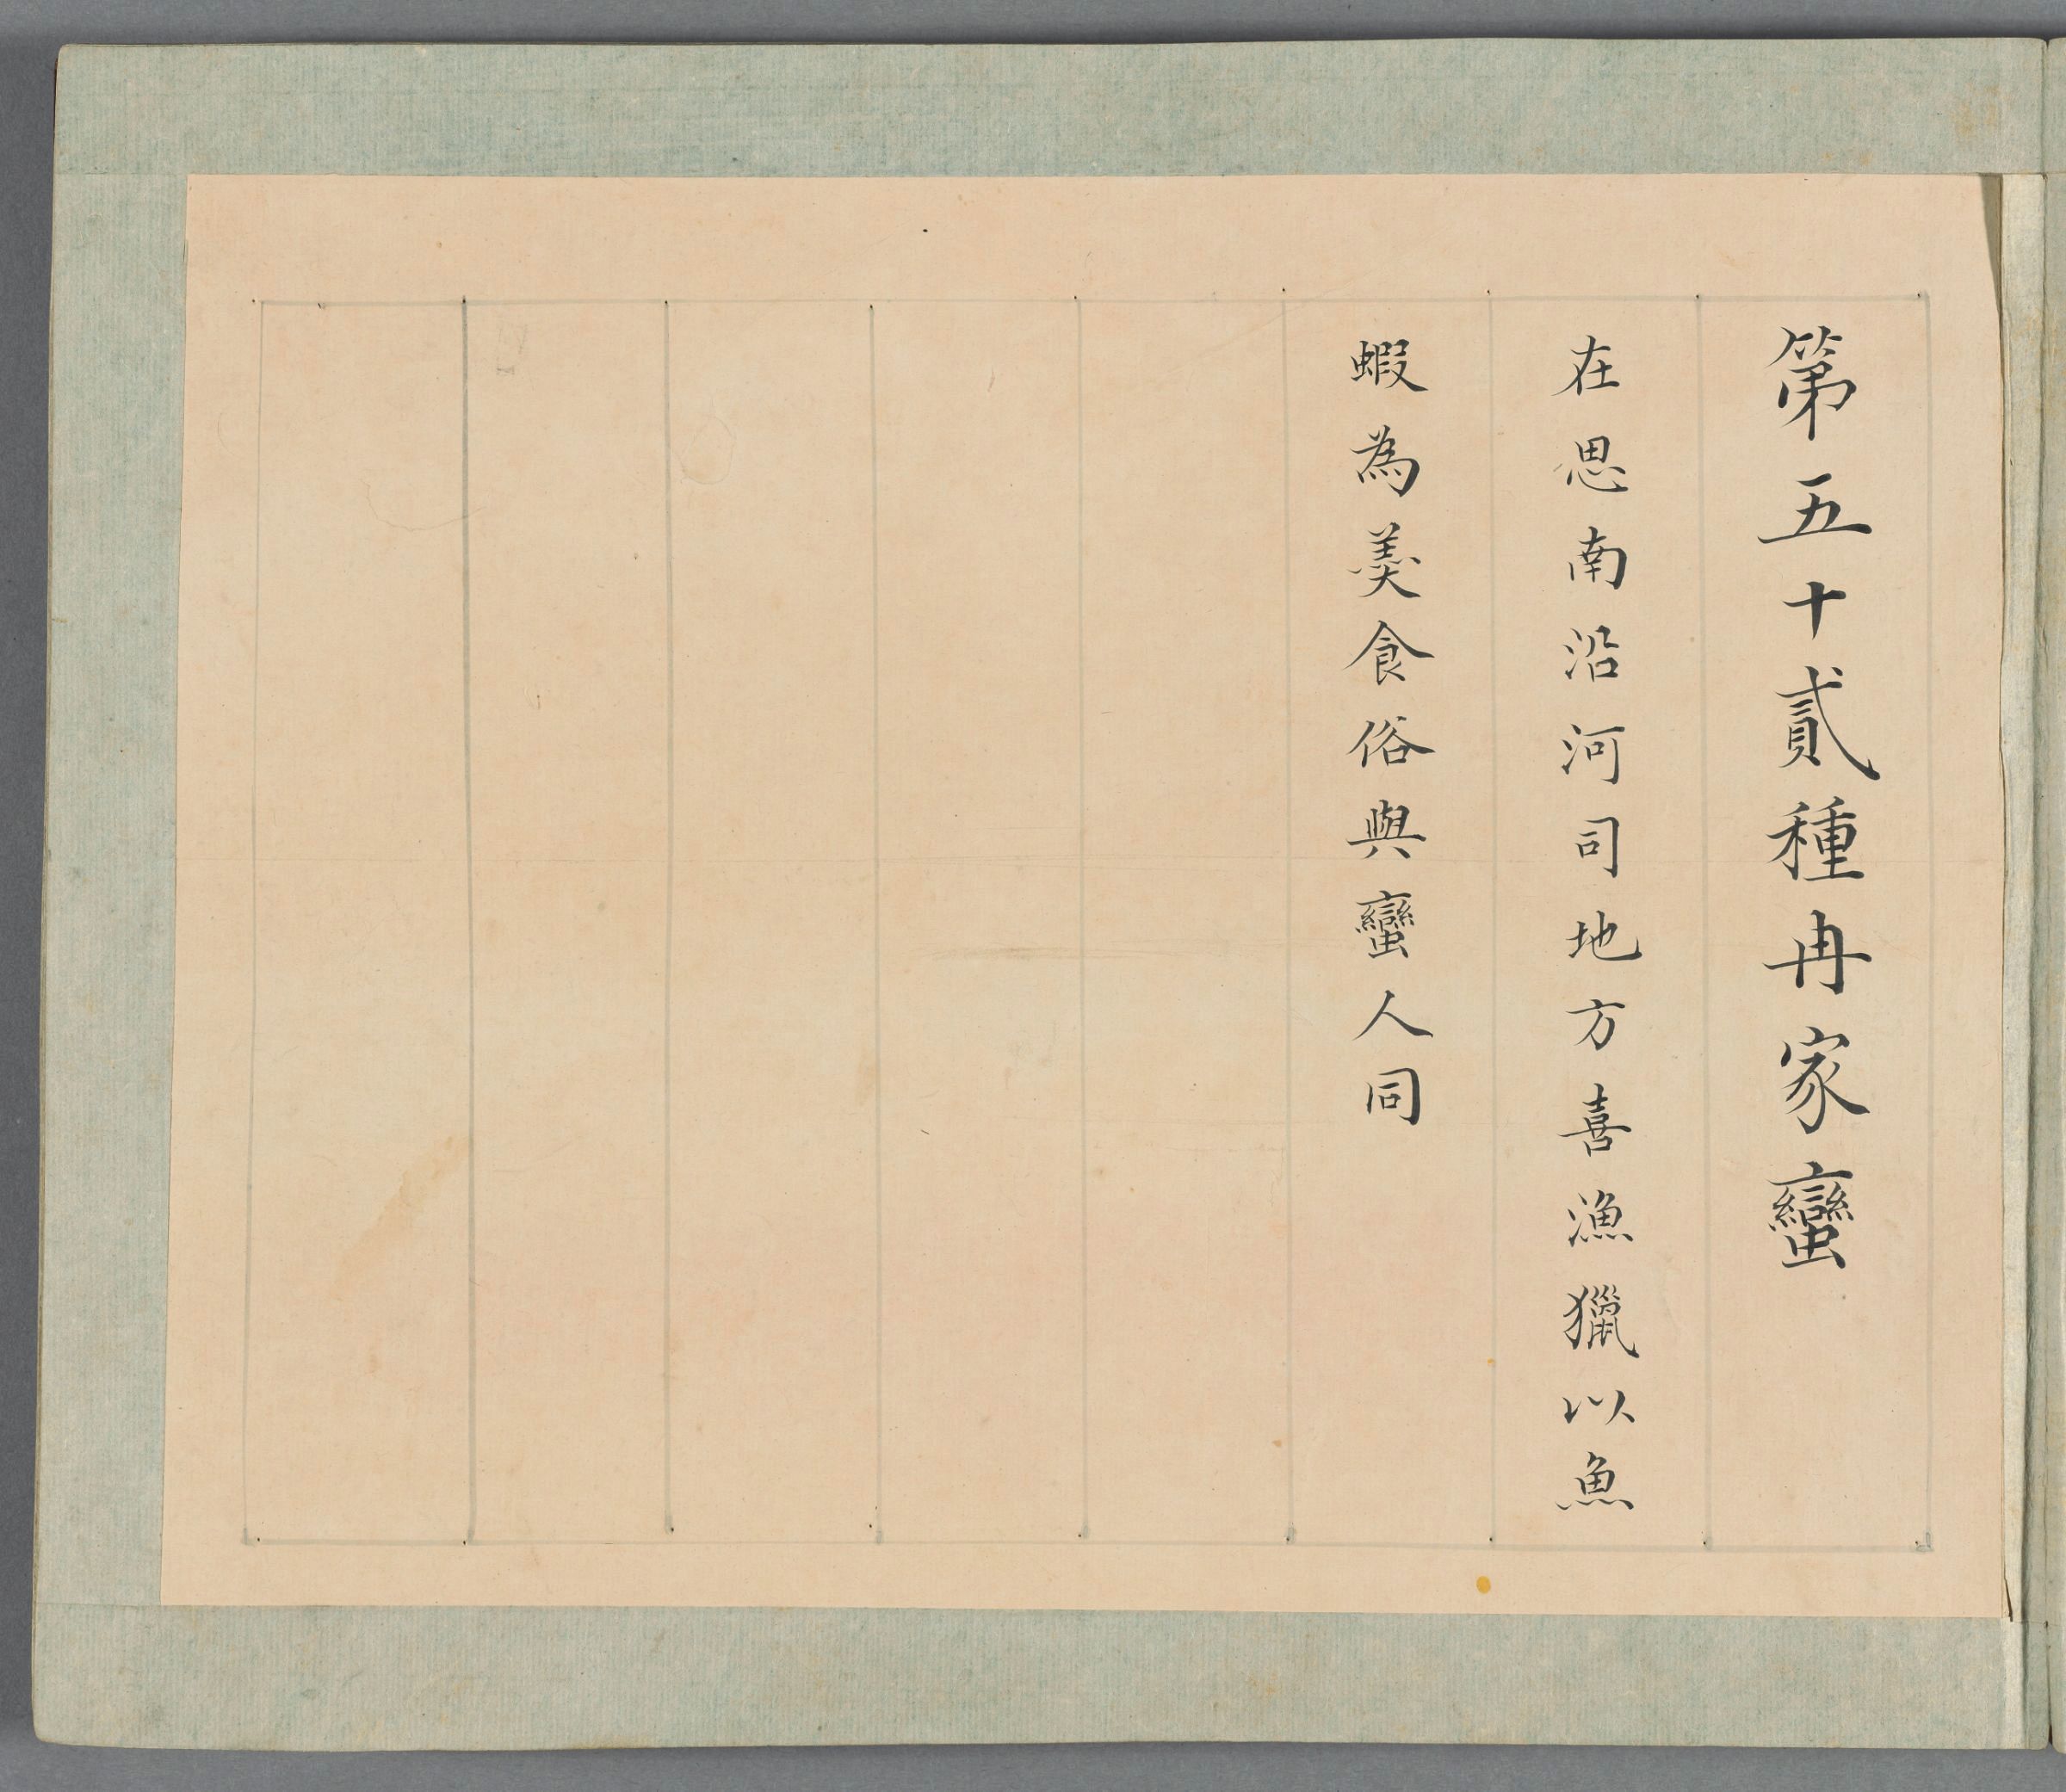 第五十貳種冉家蠻
在思南沿河司地方喜漁獵以魚
蝦為羙食俗與蠻人同